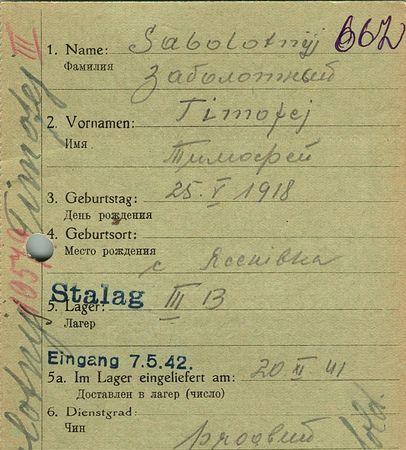 1. Name: Sabolotnyj 662
Фамилия Заболотный
2. Vornamen: Timofej
Имя Тимофей
3. Geburtstag: 25. V 1918
День рождения
4. Geburtsort:
Место рождения с
Stalag
5. Lager: III B
Лагер
Eingang 7.5.42.
5a. Im Lager eingeliefert am: 20 XI 41
Доставлен в лагер (число)
6. Dienstgrad:
Чин
Timofej III